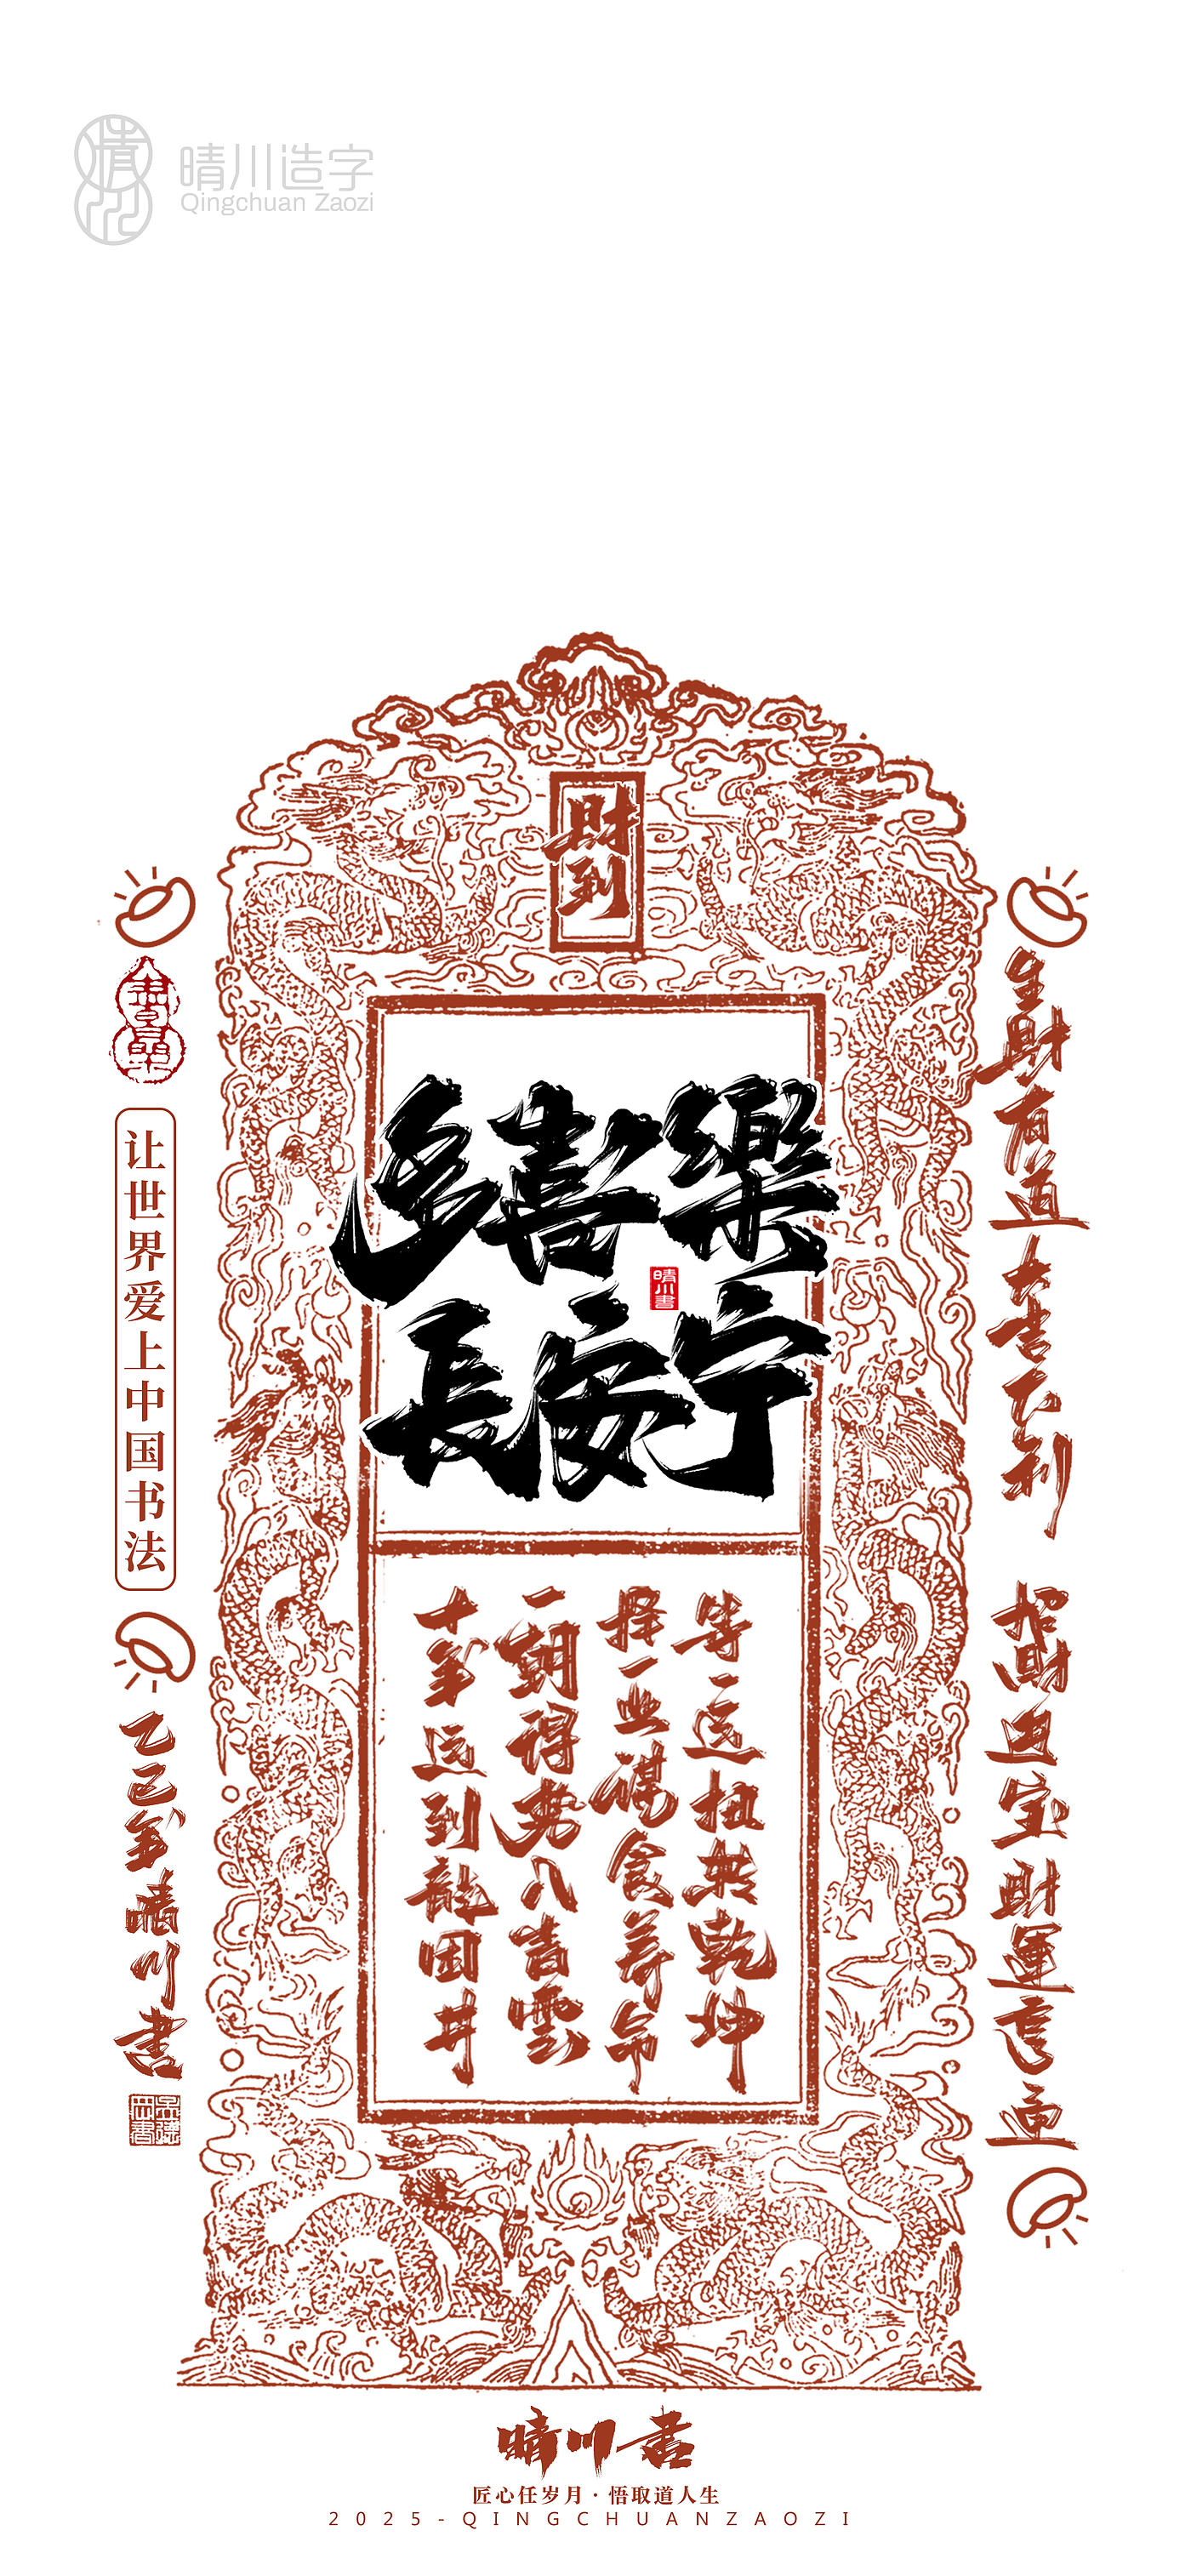 晴川造字
Qingchuan Zaozi
財到
多喜樂
長安宁
晴川書
等一运扭转乾坤
择一业谋食养命
一朝得势入青雲
十年运到龍困井
生財有道大吉大利
招財进宝財運亨通
让世界爱上中国书法
乙巳年晴川書
晴川書
匠心任岁月·悟取道人生
2025-QINGCHUANZAOZI